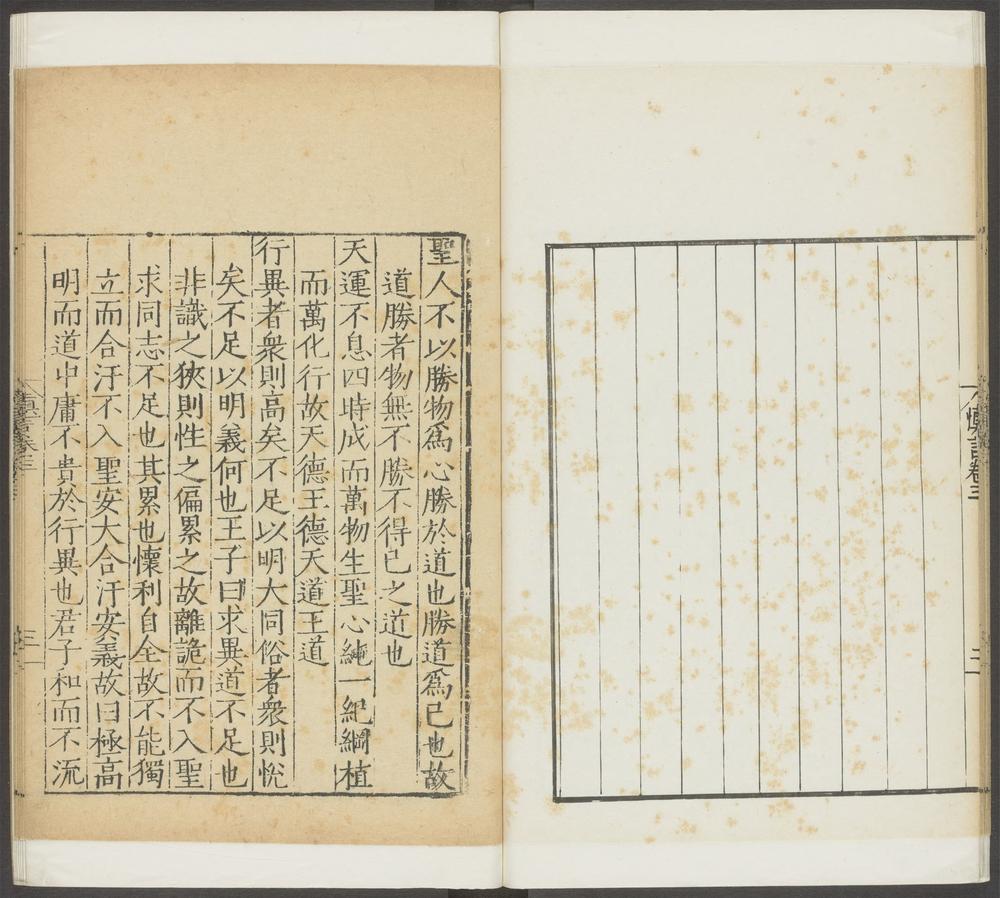 慎言卷三
三
聖人不以勝物爲心勝於道也勝道爲己也故
道勝者物無不勝不得已之道也
天運不息四時成而萬物生聖心純一紀綱植
而萬化行故天德王德天道王道
行異者衆則高矣不足以明大同俗者衆則悅
矣不足以明義何也王子曰求異道不足也
非識之狹則性之偏累之故離詭而不入聖
求同志不足也其累也懷利自全故不能獨
立而合汙不入聖安大合汙安義故曰極高
明而道中庸不貴於行異也君子和而不流
慎言卷三
三